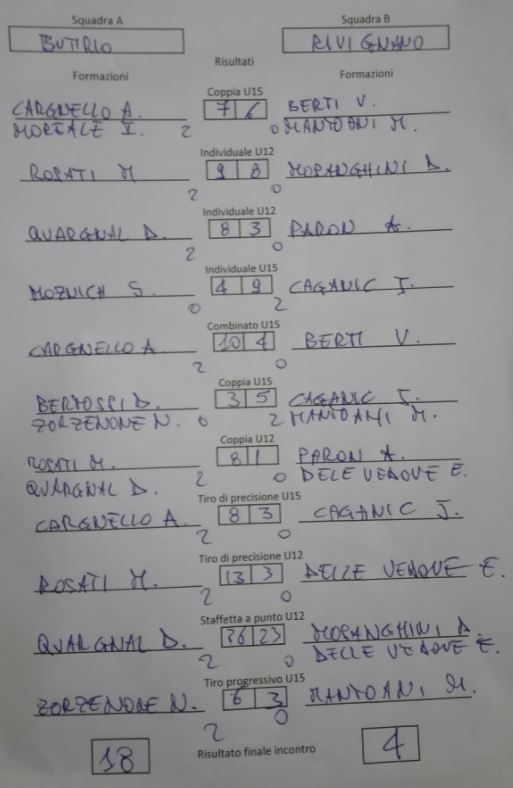 Squadra A Squadra B
BUTTRIO RIVIGNANO
Risultati
Formazioni Formazioni
Coppia U15
CARGNELLO A. 7 6 BERTI V.
MORTALE I. 2 0 MANTOANI M.
Individuale U12
ROSATI M 9 8 MORANGHINI D.
2 0
Individuale U12
QUARGNAL D. 8 3 PARON A.
2 0
Individuale U15
MOZNICH S. 4 9 CAGANIC J.
0 2
Combinato U15
CARGNELLO A 10 4 BERTI V.
2 0
Coppia U15
BERTOSSI D. 3 5 CAGANIC J.
ZORZENONE N. 0 2 MANTOANI M.
Coppia U12
ROSATI M. 8 1 PARON A.
QUARGNAL D. 2 0 DELE VEDOVE E.
Tiro di precisione U15
CARGNELLO A. 8 3 CAGANIC J.
2 0
Tiro di precisione U12
ROSATI M. 13 3 DELLE VEDOVE E.
2 0
Staffetta a punto U12
QUARGNAL D. 26 23 MORANGHINI D.
2 0 DELLE VEDOVE E.
Tiro progressivo U15
ZORZENONE N. 6 3 MANTOANI M.
2 0
18 Risultato finale incontro 4